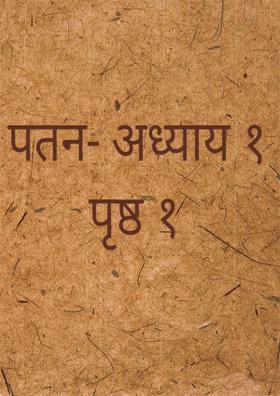 पतन- अध्याय १
पृष्ठ १